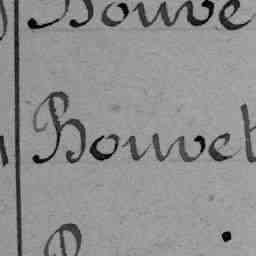 Bouve
Bouvet